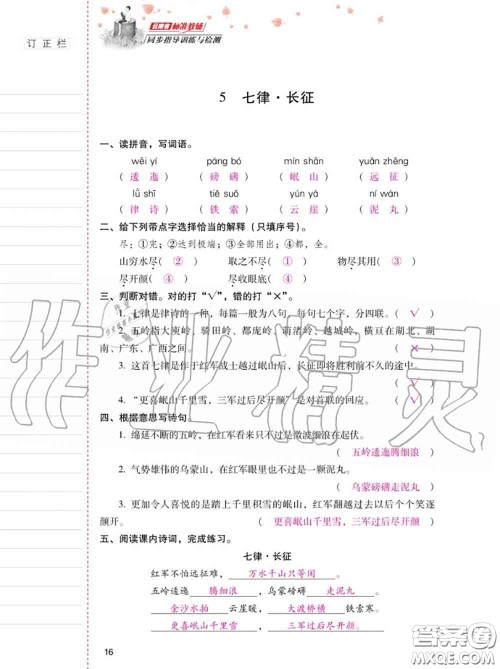 订正栏
云南省标准教辅
同步指导训练与检测
5 七律·长征
一、读拼音，写词语。
wēi yí páng bó mín shān yuǎn zhēng
（逶迤）（磅礴）（岷山）（远征）
lǜ shī tiě suǒ yún yá ní wán
（律诗）（铁索）（云崖）（泥丸）
二、给下列带点字选择恰当的解释（只填序号）。
尽：①完；②达到极端；③全部用出；④都，全。
山穷水尽（②） 取之不尽（①） 物尽其用（③）
尽开颜（④） 尽收眼底（④）
三、判断对错。对的打“√”，错的打“×”。
1. 七律是律诗的一种，每篇一般为八句，每句七个字，分四联。（√）
2. 五岭指大庾岭、骑田岭、都庞岭、萌渚岭、越城岭，横亘在湖北、湖
南、广东、广西之间。（×）
3. 这首七律是作于红军战士越过岷山后，长征即将胜利前不久的途中。
（√）
4. “更喜岷山千里雪，三军过后尽开颜”是对首联的回应。（√）
四、根据意思写诗句。
1. 绵延不断的五岭，在红军看来只不过是微波细浪在起伏。
（五岭逶迤腾细浪）
2. 气势雄伟的乌蒙山，在红军眼里也不过是一颗泥丸。
（乌蒙磅礴走泥丸）
3. 更加令人喜悦的是踏上千里积雪的岷山，红军翻越过去以后个个笑逐
颜开。（更喜岷山千里雪，三军过后尽开颜）
五、阅读课内诗词，完成练习。
七律·长征
红军不怕远征难，万水千山只等闲。
五岭逶迤腾细浪，乌蒙磅礴走泥丸。
金沙水拍云崖暖，大渡桥横铁索寒。
更喜岷山千里雪，三军过后尽开颜。
16
作业精灵
答案圈
MXQE.COM